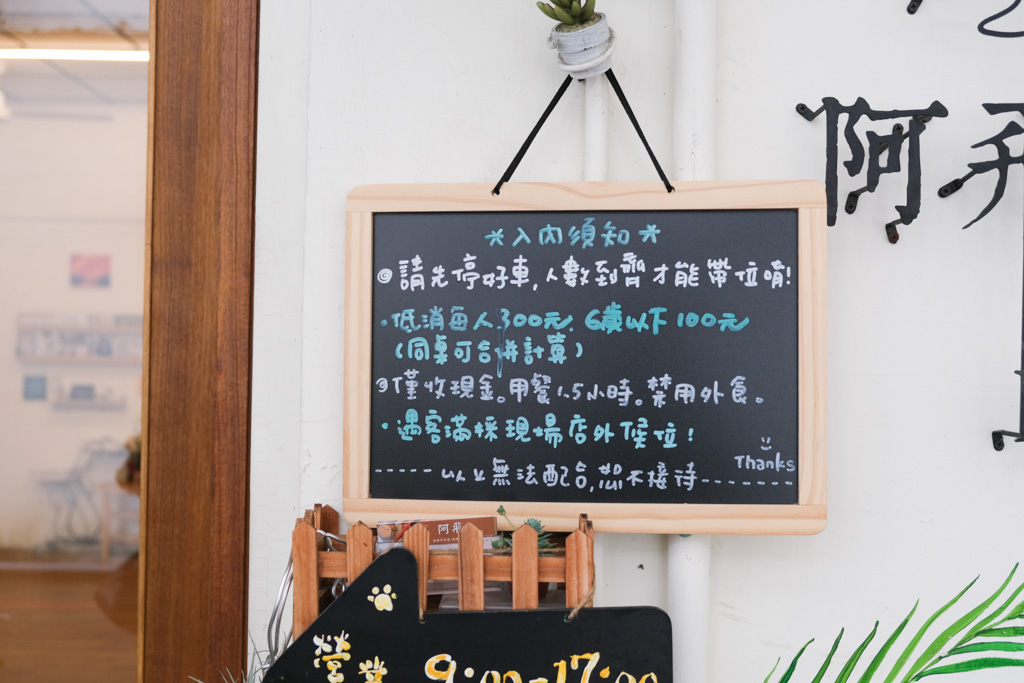 阿飛
*入內須知*
請先停好車,人數到齊才能帶位唷!
·低消每人300元.6歲以下100元
(同桌可合併計算)
僅收現金。用餐1.5小時。禁用外食。
·遇客滿採現場店外候位!
Thanks
-----以上無法配合,恕不接待-------
阿飛
營業 9:00-17:00